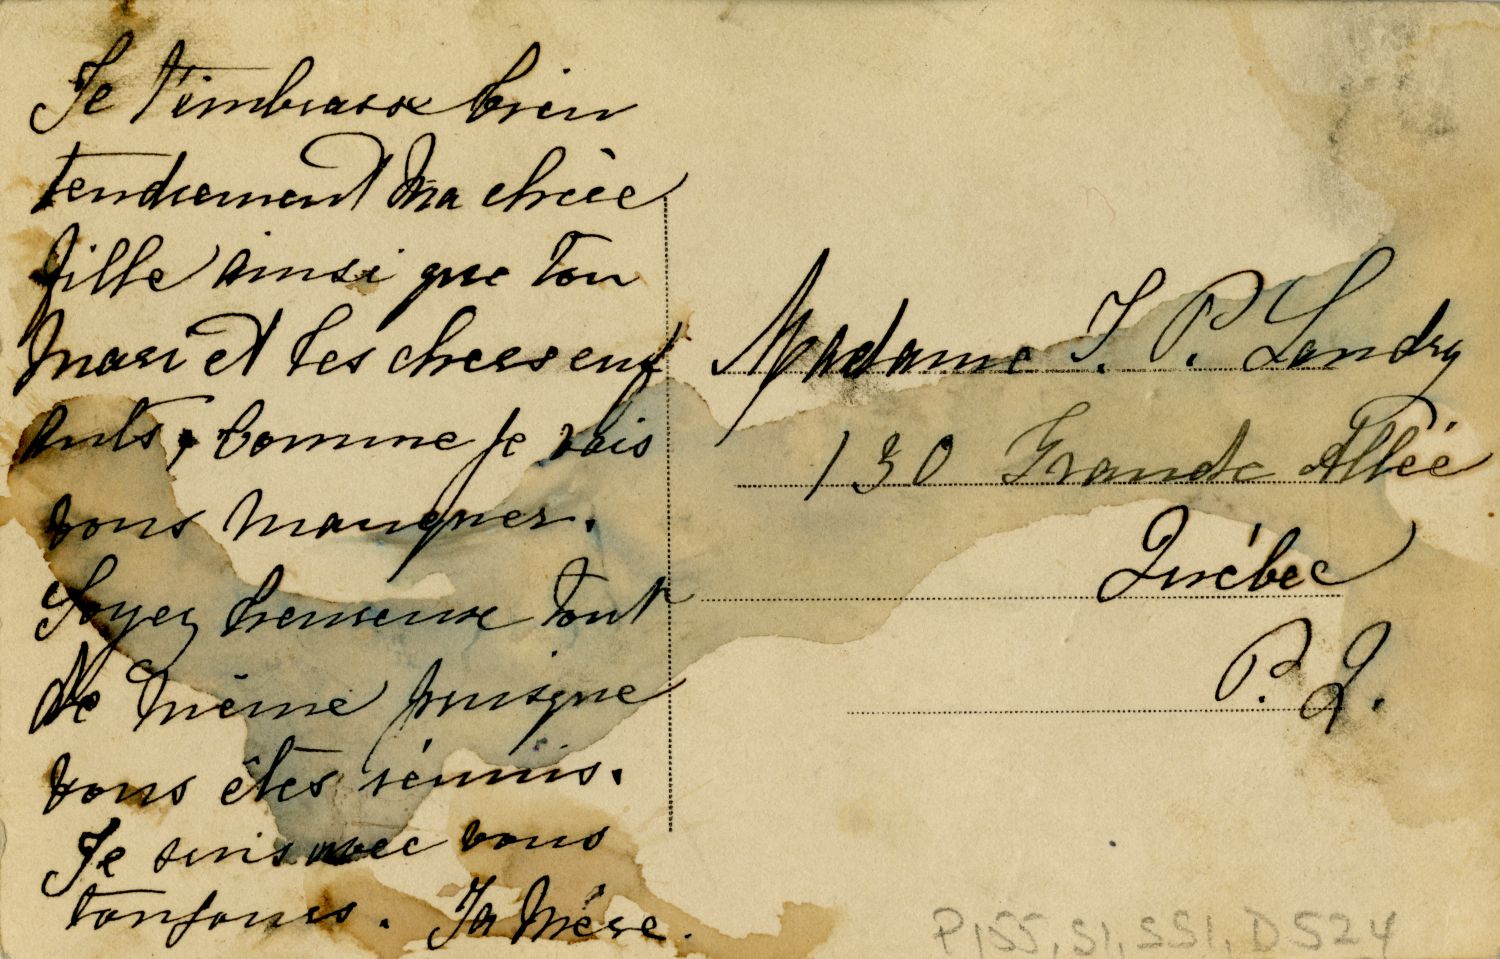 Je t'embrasse bien
tendrement ma chère
fille ainsi que ton
mari et tes chers enf
ants, comme je vais
vous manquer.
Soyez heureuse tout
de même puisque
vous êtes réunis.
Je suis avec vous
toujours. Ta Mère.
Madame J. P. Landry
130 Grande Allée
Québec
P. Q.
P155, S1, SS1, D524